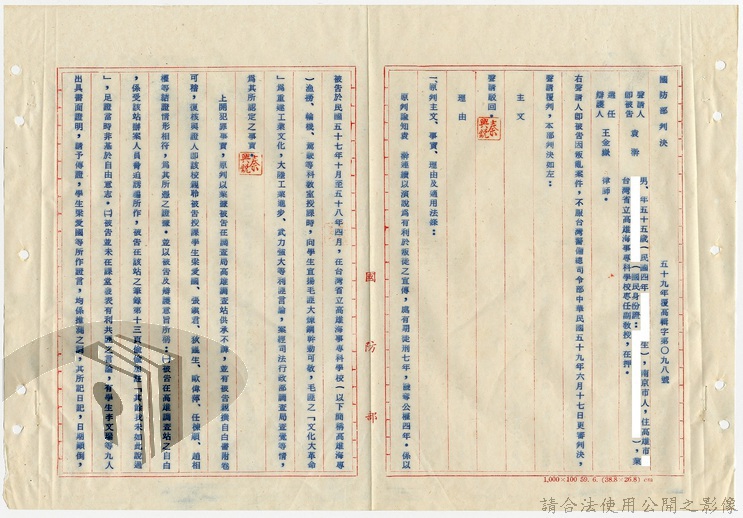 國防部判決
五十九年覆高䡖字第〇九八號
聲請人
即被告
袁幹
男、年五十五歲(民國四年 生),南京市人,住高雄市
(國民身份證: ),業
台灣省立高雄海事專科學校專任副教授,在押。
選任
辯護人
王金鐵
律師。
右聲請人即被告因叛亂案件,不服台灣警備總司令部中華民國五十九年六月十七日更審判決,
聲請覆判,本部判決如左:
主文
聲請駁回。
理由
一、原判主文、事實、理由及適用法條:
原判論知袁 幹連續以演說為有利於叛徒之宣傳,處有期徒刑七年,褫奪公權四年。係以
國防部
被告於民國五十七年十月至五十八年四月,在台灣省立高雄海事專科學校(以下簡稱高雄海專
)漁撈、輪機、駕駛等科教室授課時,向學生宣揚毛匪大煉鋼幹勁可敬,毛匪之「文化大革命
」為重建工業文化,大陸工業進步、武力強大等利匪言論,案經司法行政部調查局查覺等情,
為其所認定之事實。
上開犯罪事實,原判以業據被告在調查局高雄調查站供承不諱,並有被告親撰自白書附卷
可稽,復核與證人即該校親聆被告授課學生梁愛國、張 、狄 生、歐偉 、任 順、趙相
權等結證情形相符,為其所憑之證據。並以被告及辯護意旨所稱:㈠被告在高雄調查站之自白
,係受該站辦案人員脅迫誘導所作,被告在該站之筆錄第十三頁 「其餘我未如此說過
」,足證當時非基於自由意志。㈡被告並未在課堂發表有利共匪之言論,有學生李文 等九人
出具書面證明,請予傳證,學生梁愛國等所作證言,均係推測之詞,其所記日記,日期顛倒,
1,000×100 59. 6. (38.8×26.8)
請合法使用公開之影像